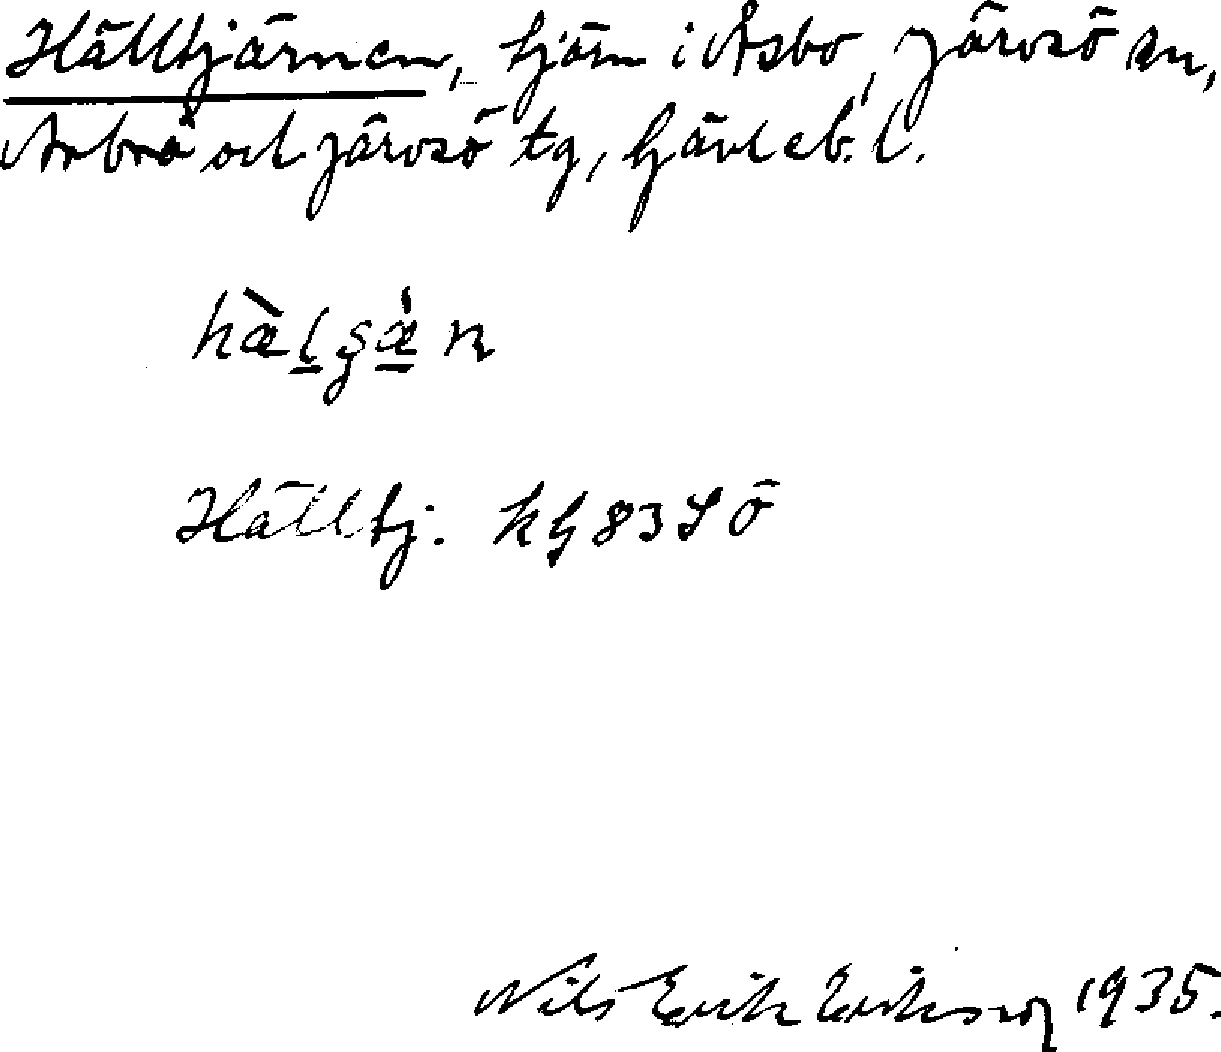 Hälltjärnen, tjärn i Åsbo, Järvsö sn,
Arbrå och Järvsö tg, Gävleb. l.
Hälltj. KG 83 SÖ
Nils Erik Eriksson 1935.